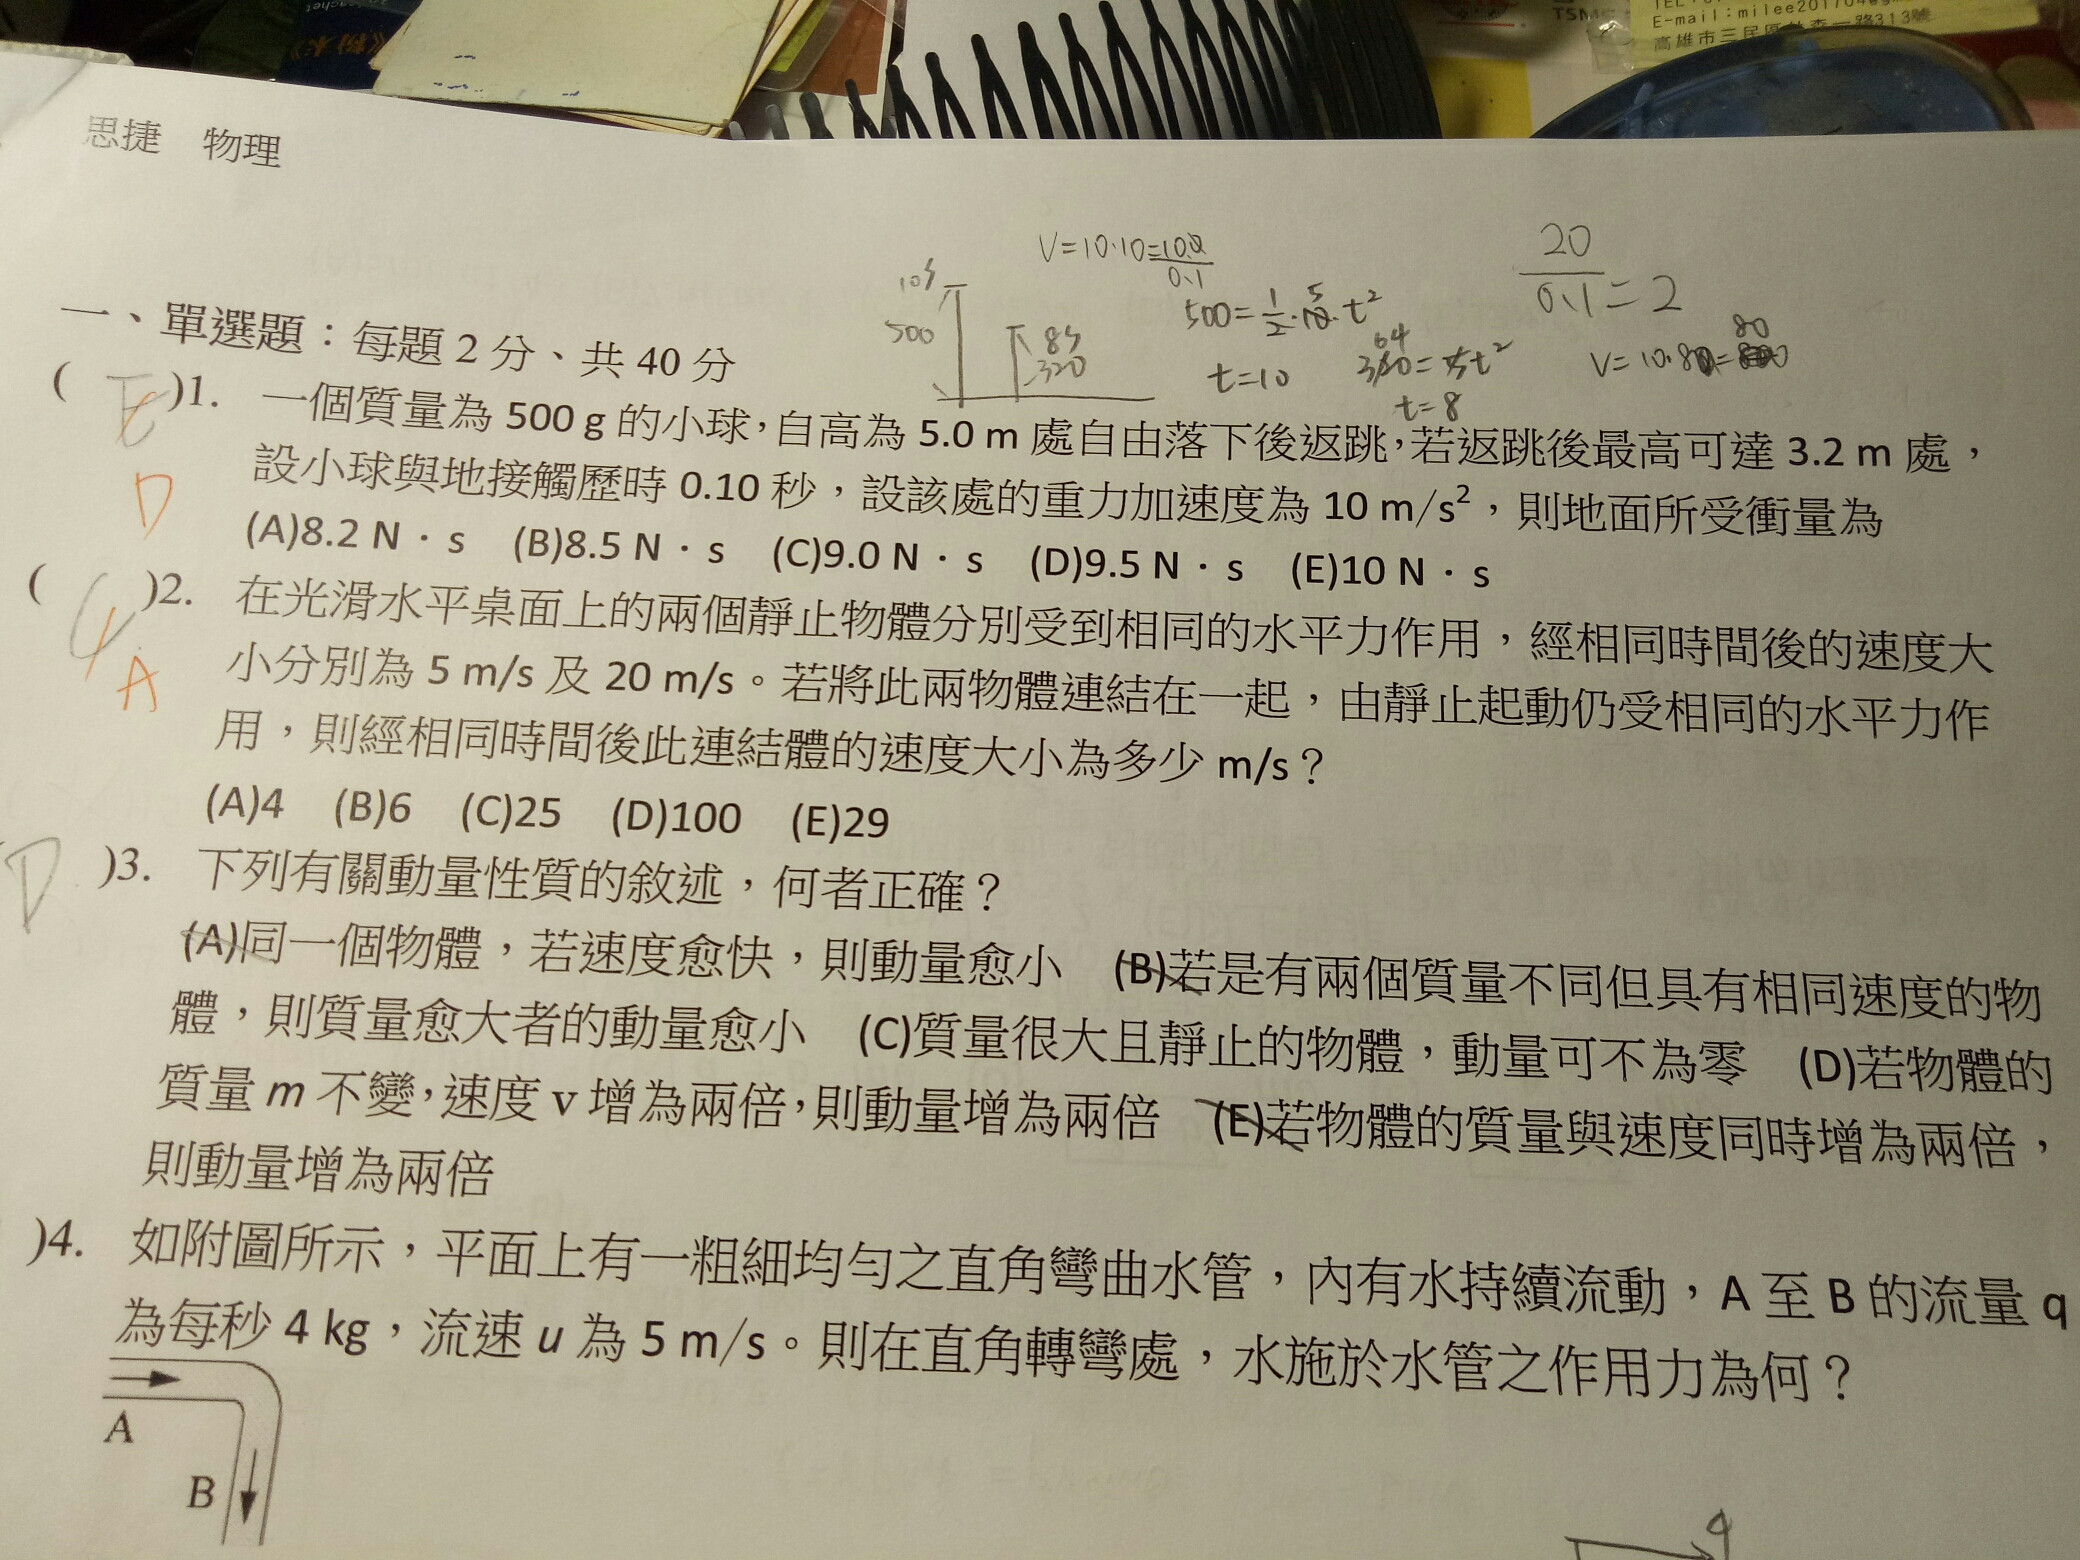 TSMC
TEL:0
E-mail:milee201704@g
高雄市三民區 一路313號
《粉末》
思捷 物理
V=10·10=100
0.1
20
0.1 = 2
10s
500
8s
320
500=1/2·10·t²
5
t=10
64
320=5t²
t=8
80
V=10·80=
一、單選題:每題 2 分、共 40 分
( )1. 一個質量為 500 g 的小球,自高為 5.0 m 處自由落下後返跳,若返跳後最高可達 3.2 m 處,
設小球與地接觸歷時 0.10 秒,設該處的重力加速度為 10 m/s²,則地面所受衝量為
D
(A)8.2 N·s (B)8.5 N·s (C)9.0 N·s (D)9.5 N·s (E)10 N·s
( )2. 在光滑水平桌面上的兩個靜止物體分別受到相同的水平力作用,經相同時間後的速度大
A
小分別為 5 m/s 及 20 m/s。若將此兩物體連結在一起,由靜止起動仍受相同的水平力作
用,則經相同時間後此連結體的速度大小為多少 m/s?
(A)4 (B)6 (C)25 (D)100 (E)29
D )3. 下列有關動量性質的敘述,何者正確?
(A)同一個物體,若速度愈快,則動量愈小 (B)若是有兩個質量不同但具有相同速度的物
體,則質量愈大者的動量愈小 (C)質量很大且靜止的物體,動量可不為零 (D)若物體的
質量 m 不變,速度 v 增為兩倍,則動量增為兩倍 (E)若物體的質量與速度同時增為兩倍,
則動量增為兩倍
)4. 如附圖所示,平面上有一粗細均勻之直角彎曲水管,內有水持續流動,A 至 B 的流量 q
為每秒 4 kg,流速 u 為 5 m/s。則在直角轉彎處,水施於水管之作用力為何?
A
B